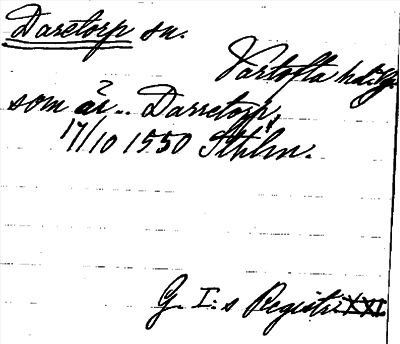 Daretorp sn.
Vartofta hd. Vg.
som är .. Darretorp,
17/10 1550 Sthlm.
G. I:s Registr XXI.